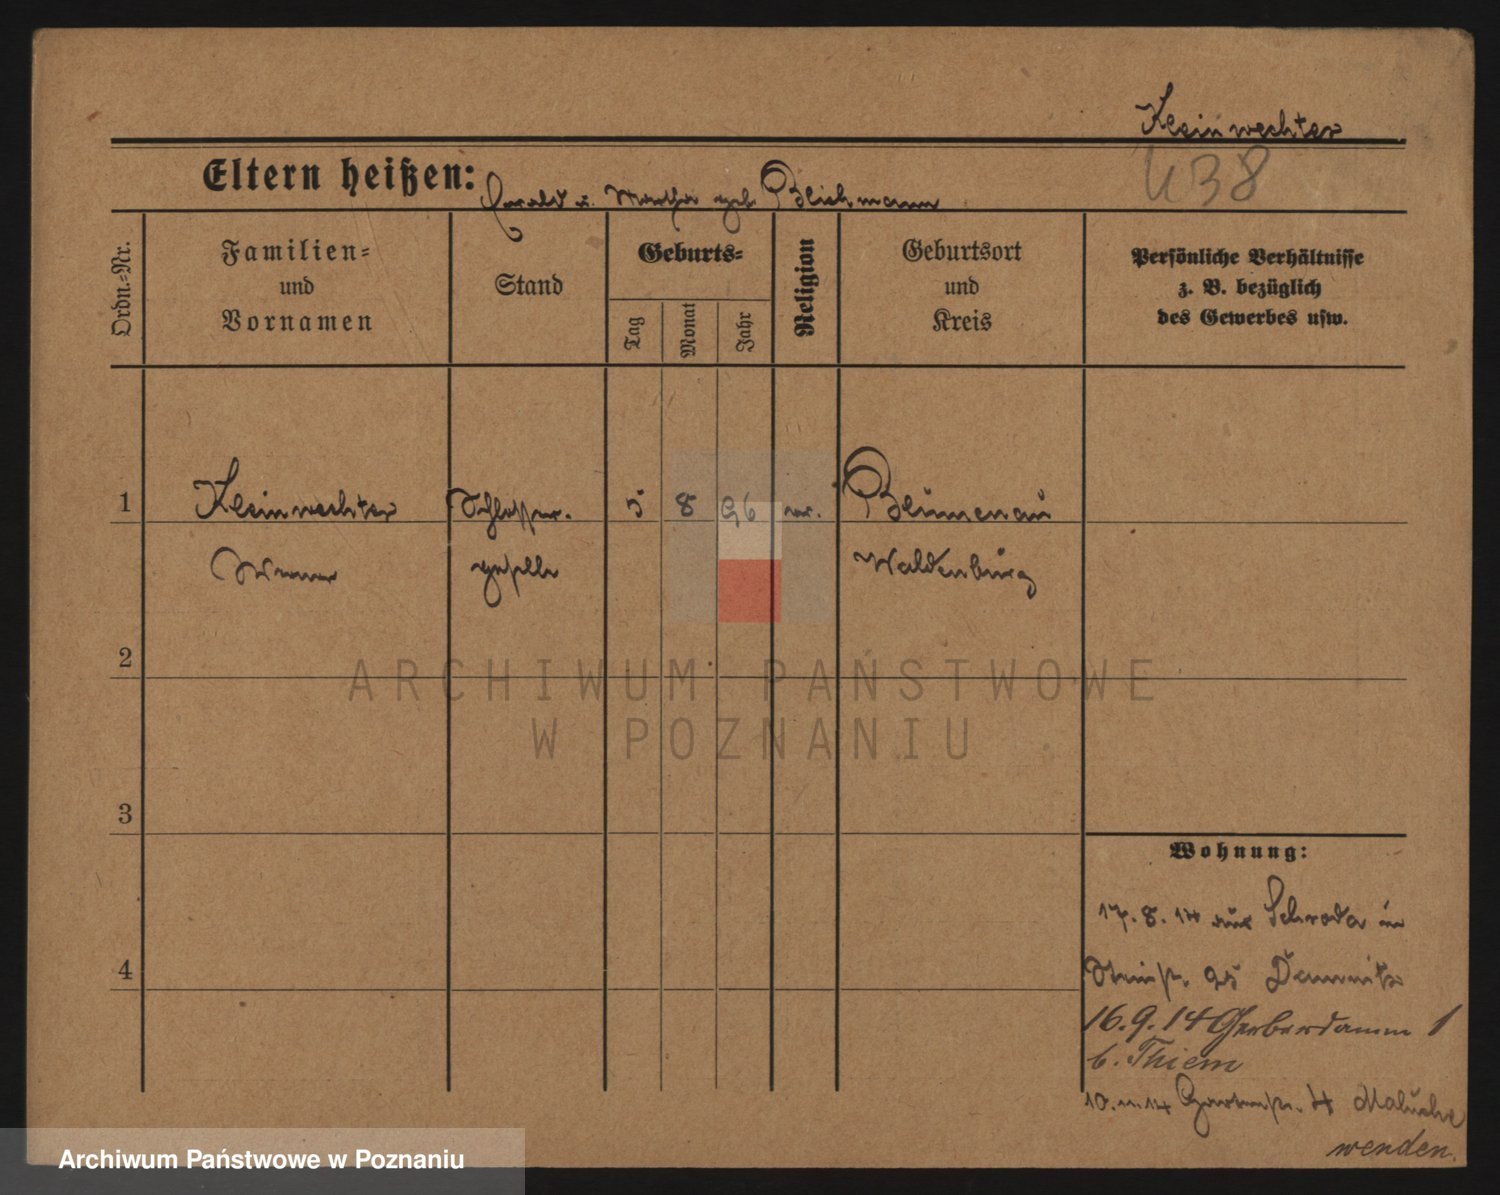 Kleinwechter
438
Eltern heißen: Oswald u. Martha geb. Bleichmann
Ordn.-Nr.
Familien-
und
Vornamen
Stand
Geburts-
Tag
Monat
Jahr
Religion
Geburtsort
und
Kreis
Persönliche Verhältnisse
z. B. bezüglich
des Gewerbes usw.
1 Kleinwechter Schlosser- 5 8 96 ev. Blumenau
Werner geselle Waldenburg
2
ARCHIWUM PAŃSTWOWE
W POZNANIU
3
Wohnung:
17.8.14 aus Schroda in
4
16.9.14 Gerberdamm 1
b. Thiem
10.11.14 Gartenstr. 4
wenden.
Archiwum Państwowe w Poznaniu